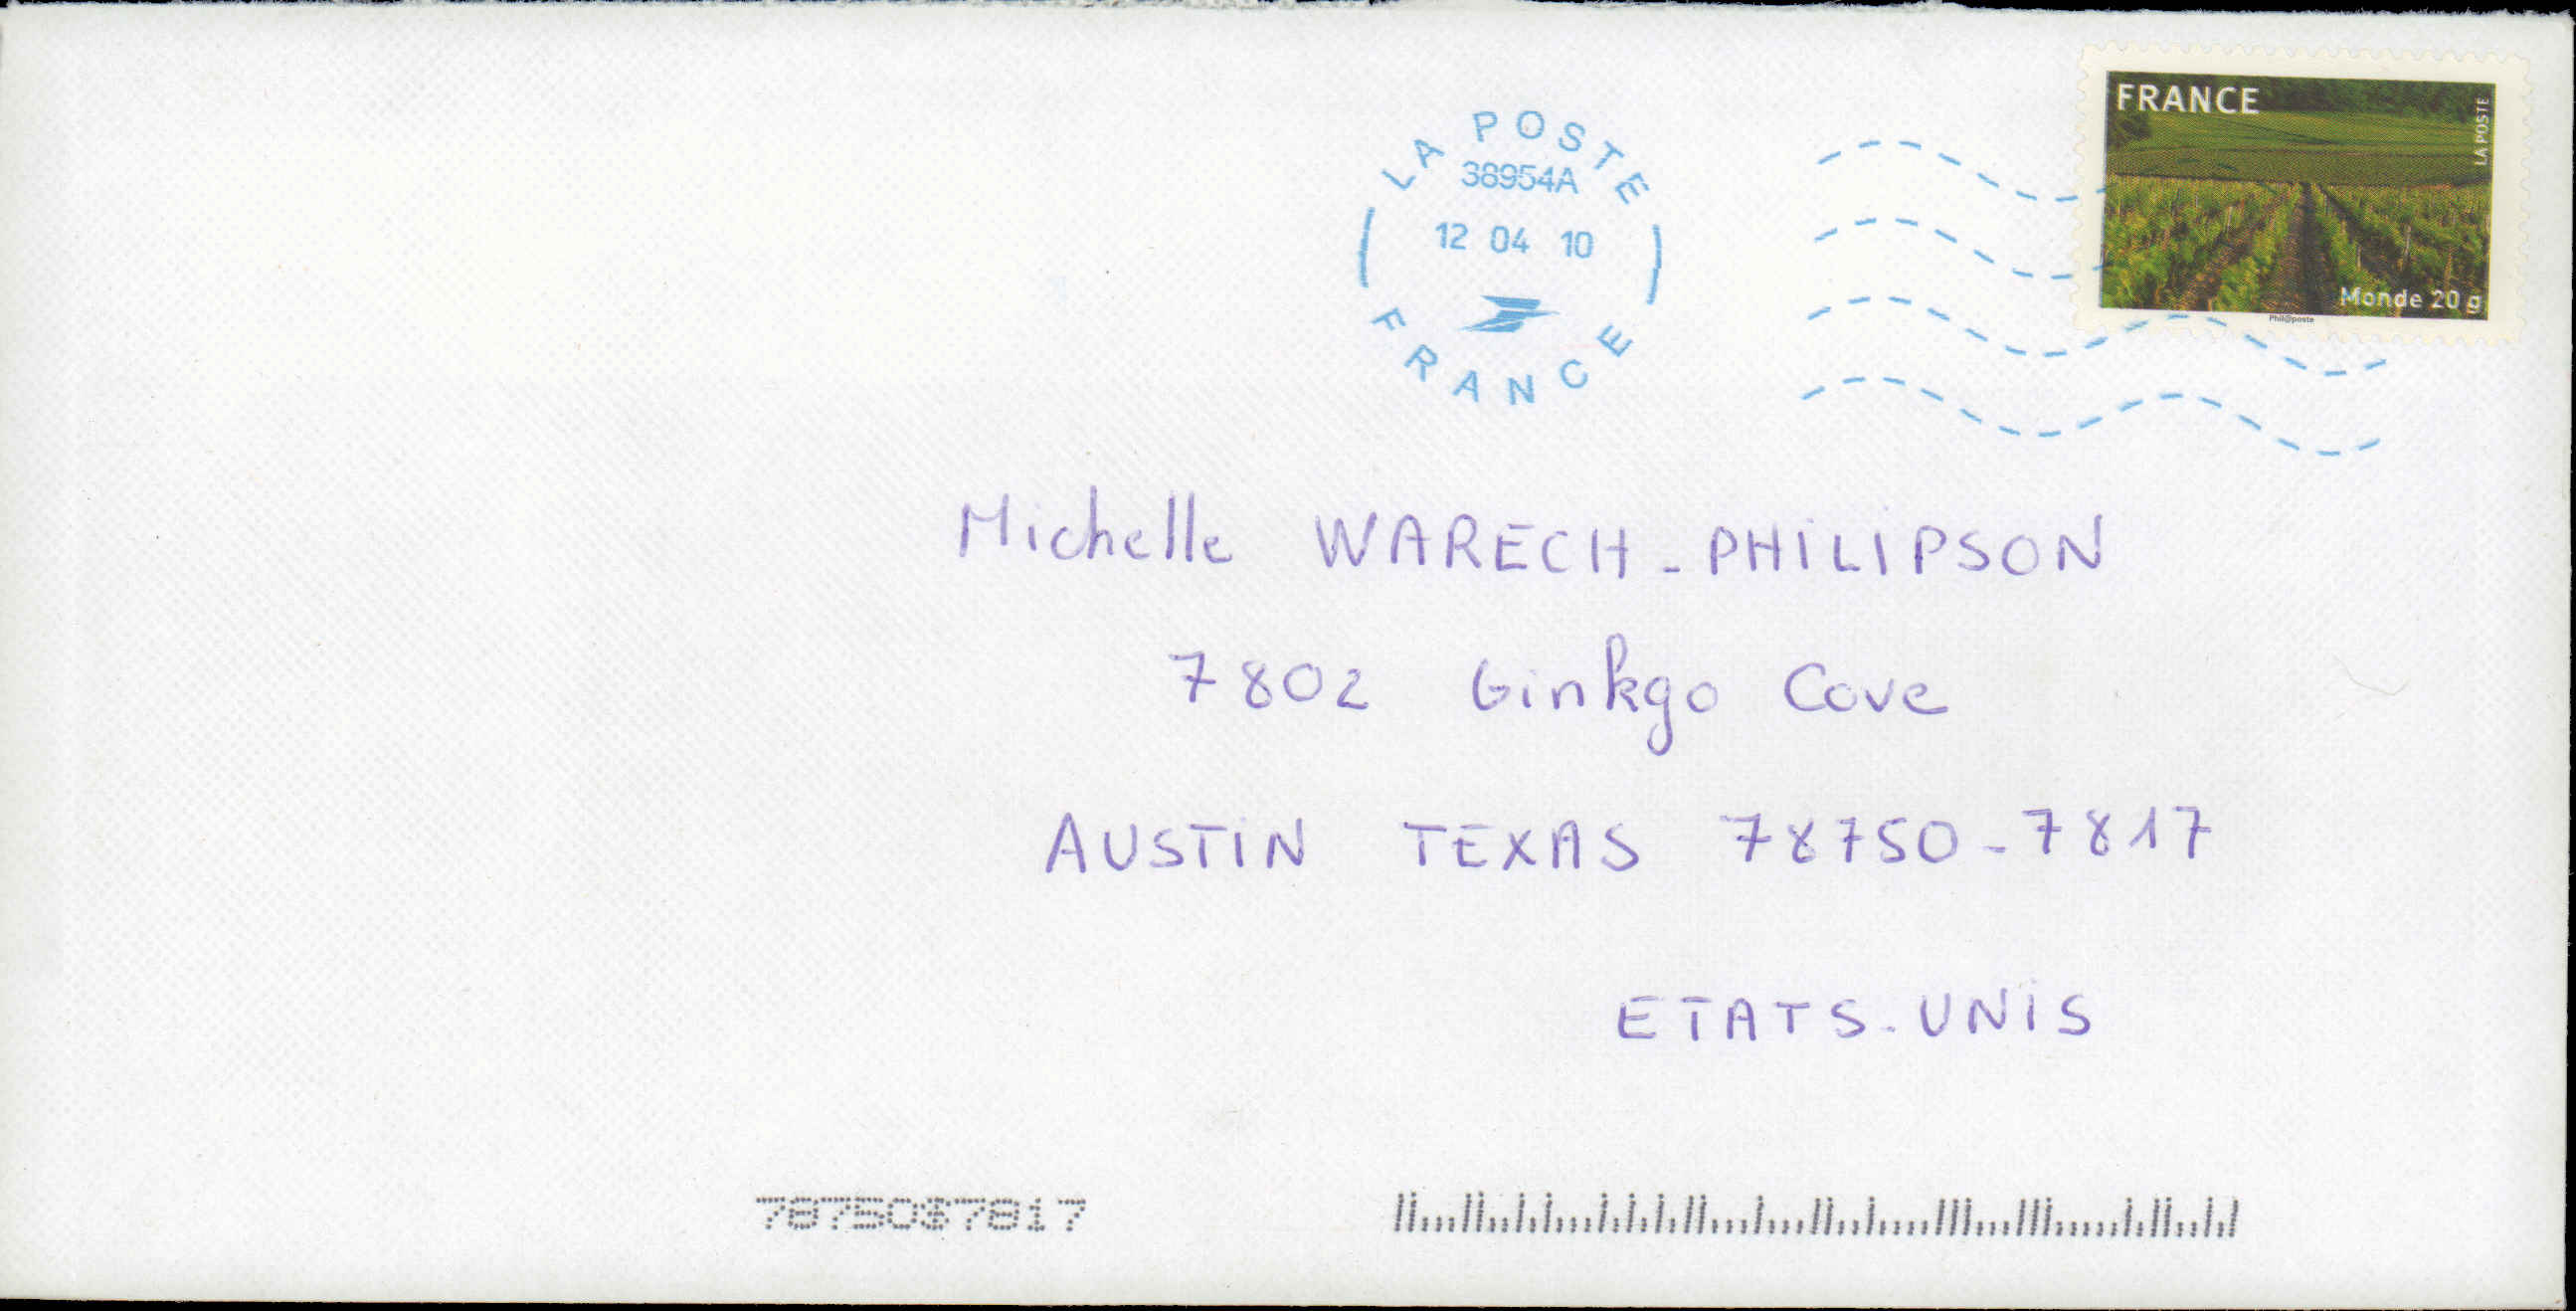 FRANCE
LA POSTE
Monde 20 g
Phil@poste
LA POSTE
38954A
12 04 10
FRANCE
Michelle WARECH-PHILIPSON
7802 Ginkgo Cove
AUSTIN TEXAS 78750-7817
ETATS-UNIS
78750$7817